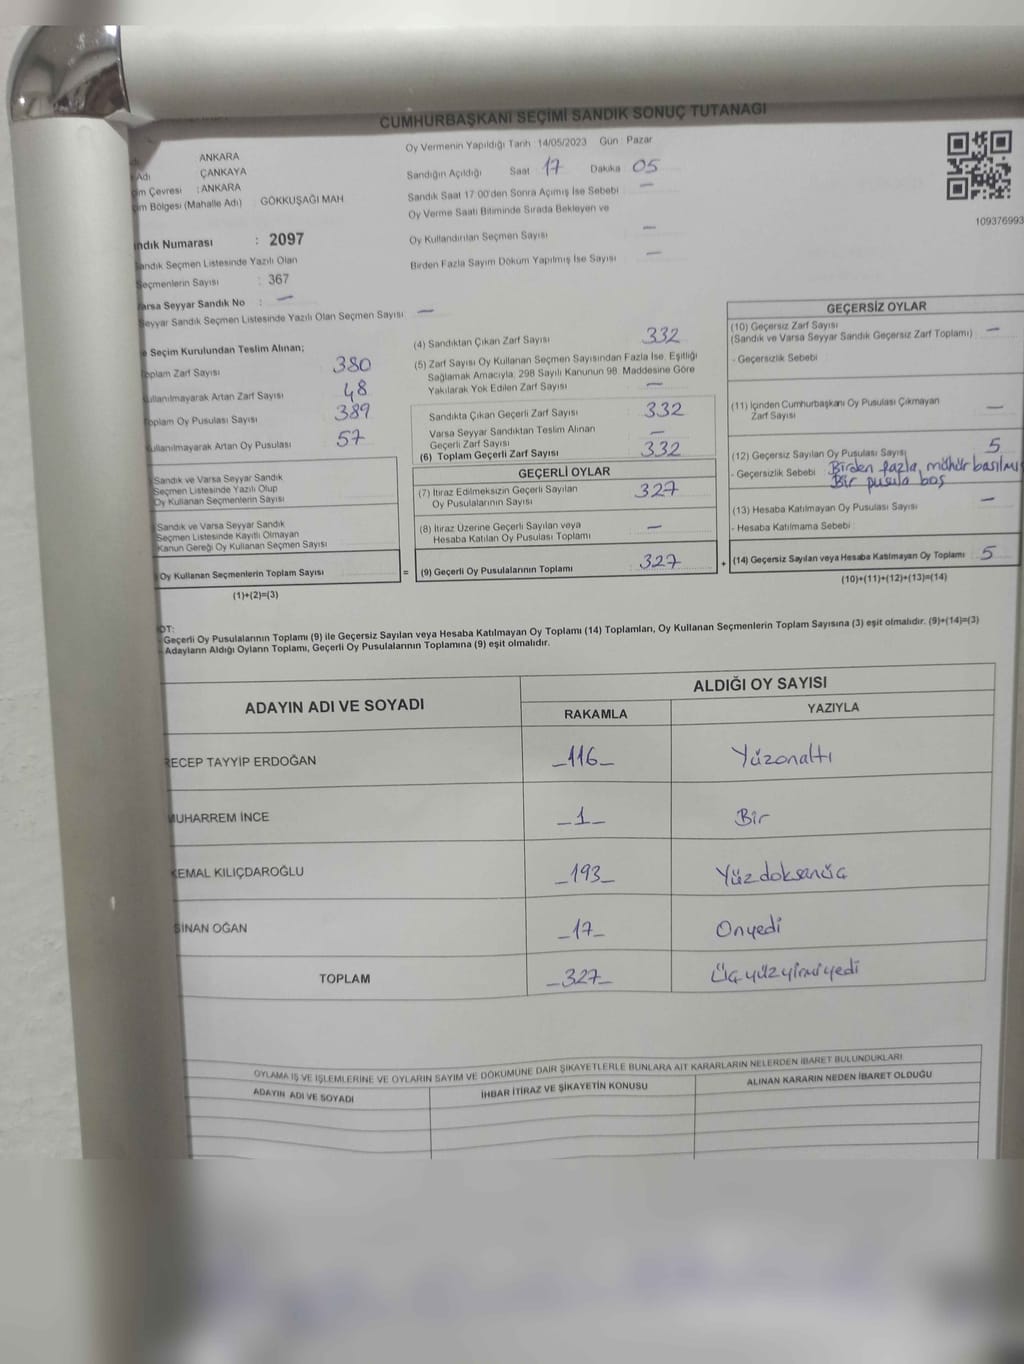 CUMHURBAŞKANI SEÇİMİ SANDIK SONUÇ TUTANAĞI
ANKARA
Adı ÇANKAYA
Çevresi : ANKARA
Bölgesi (Mahalle Adı) GÖKKUŞAĞI MAH
Numarası : 2097
Sandık Seçmen Listesinde Yazılı Olan
Seçmenlerin Sayısı : 367
Varsa Seyyar Sandık No : —
Seyyar Sandık Seçmen Listesinde Yazılı Olan Seçmen Sayısı —
Oy Vermenin Yapıldığı Tarih 14/05/2023 Gün Pazar
Sandığın Açıldığı Saat 17 Dakika 05
Sandık Saat 17.00'den Sonra Açımış İse Sebebi —
Oy Verme Saati Bitiminde Sırada Bekleyen ve
Oy Kullandırılan Seçmen Sayısı —
Birden Fazla Sayım Döküm Yapılmış İse Sayısı —
109376993
Seçim Kurulundan Teslim Alınan;
Toplam Zarf Sayısı 380
Kullanılmayarak Artan Zarf Sayısı 48
Toplam Oy Pusulası Sayısı 389
Kullanılmayarak Artan Oy Pusulası 57
Sandık ve Varsa Seyyar Sandık
Seçmen Listesinde Yazılı Olup
Oy Kullanan Seçmenlerin Sayısı
Sandık ve Varsa Seyyar Sandık
Seçmen Listesinde Kayıtlı Olmayan
Kanun Gereği Oy Kullanan Seçmen Sayısı
Oy Kullanan Seçmenlerin Toplam Sayısı =
(1)+(2)=(3)
(4) Sandıktan Çıkan Zarf Sayısı 332
(5) Zarf Sayısı Oy Kullanan Seçmen Sayısından Fazla İse, Eşitliği
Sağlamak Amacıyla; 298 Sayılı Kanunun 98. Maddesine Göre
Yakılarak Yok Edilen Zarf Sayısı —
Sandıkta Çıkan Geçerli Zarf Sayısı 332
Varsa Seyyar Sandıktan Teslim Alınan
Geçerli Zarf Sayısı —
(6) Toplam Geçerli Zarf Sayısı 332
GEÇERLİ OYLAR
(7) İtiraz Edilmeksizin Geçerli Sayılan
Oy Pusulalarının Sayısı 327
(8) İtiraz Üzerine Geçerli Sayılan veya
Hesaba Katılan Oy Pusulası Toplamı —
(9) Geçerli Oy Pusulalarının Toplamı 327 +
GEÇERSİZ OYLAR
(10) Geçersiz Zarf Sayısı
(Sandık ve Varsa Seyyar Sandık Geçersiz Zarf Toplamı) —
- Geçersizlik Sebebi
(11) İçinden Cumhurbaşkanı Oy Pusulası Çıkmayan
Zarf Sayısı —
(12) Geçersiz Sayılan Oy Pusulası Sayısı 5
- Geçersizlik Sebebi : Birden fazla, mühür basılmı
Bir pusula boş
(13) Hesaba Katılmayan Oy Pusulası Sayısı —
- Hesaba Katılmama Sebebi
(14) Geçersiz Sayılan veya Hesaba Katılmayan Oy Toplamı 5
(10)+(11)+(12)+(13)=(14)
NOT:
- Geçerli Oy Pusulalarının Toplamı (9) ile Geçersiz Sayılan veya Hesaba Katılmayan Oy Toplamı (14) Toplamları, Oy Kullanan Seçmenlerin Toplam Sayısına (3) eşit olmalıdır. (9)+(14)=(3)
- Adayların Aldığı Oyların Toplamı, Geçerli Oy Pusulalarının Toplamına (9) eşit olmalıdır.
ADAYIN ADI VE SOYADI
ALDIĞI OY SAYISI
RAKAMLA YAZIYLA
RECEP TAYYİP ERDOĞAN –116– Yüzonaltı
MUHARREM İNCE –1– Bir
KEMAL KILIÇDAROĞLU –193– Yüzdoksanüç
SİNAN OĞAN –17– Onyedi
TOPLAM –327– Üçyüzyirmiyedi
OYLAMA İŞ VE İŞLEMLERİNE VE OYLARIN SAYIM VE DÖKÜMÜNE DAİR ŞİKAYETLERLE BUNLARA AİT KARARLARIN NELERDEN İBARET BULUNDUKLARI
ADAYIN ADI VE SOYADI İHBAR İTİRAZ VE ŞİKAYETİN KONUSU ALINAN KARARIN NEDEN İBARET OLDUĞU